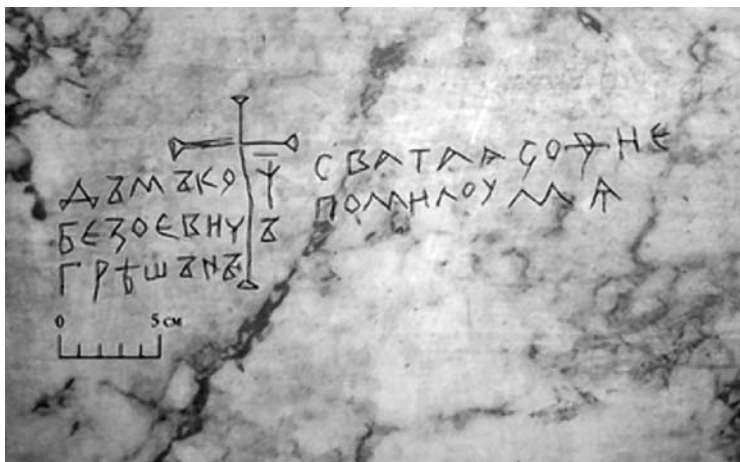 ДЪМЪКО
БЕЗОЕВИЧЪ
ГРѢШЪNЪ
СВАТАА СОФИЕ
ПОМИЛОУ МѦ
0 5 см